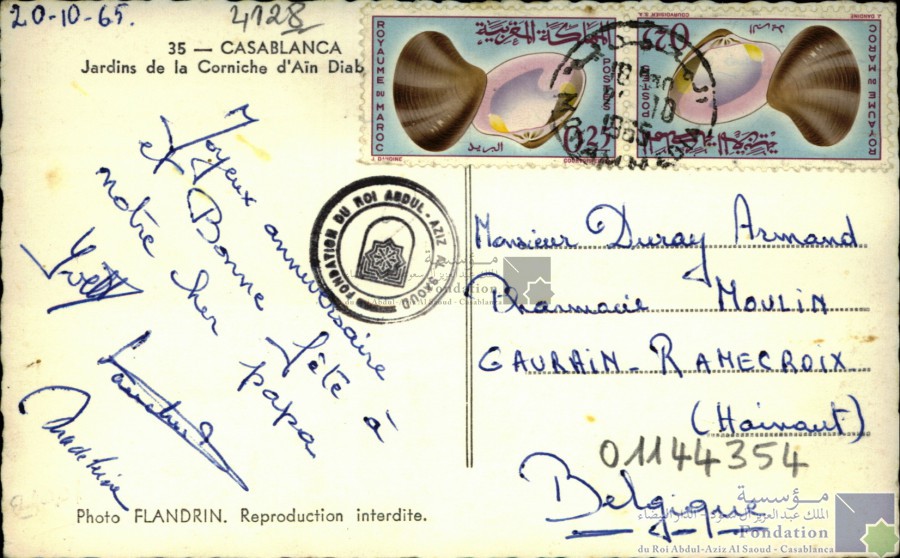 20-10-65.
4128
35 — CASABLANCA
Jardins de la Corniche d'Aïn Diab
ROYAUME DU MAROC
المملكة المغربية
POSTES
البريد
0,25
J. DANDINE
COURVOISIER S.A.
ROYAUME DU MAROC
المملكة المغربية
POSTES
البريد
0,25
J. DANDINE
COURVOISIER
1965
Joyeux anniversaire
et Bonne fête à
notre cher papa
Yvett
Madeleine
FONDATION DU ROI ABDUL-AZIZ AL SAOUD
Monsieur Duray Armand
Pharmacie MOULIN
GAURAIN-RAMECROIX
(Hainaut)
01144354
Belgique
Photo FLANDRIN. Reproduction interdite.
Fondation
du Roi Abdul-Aziz Al Saoud - Casablanca
مؤسسة
الملك عبد العزيز آل سعود - الدار البيضاء
Fondation
du Roi Abdul-Aziz Al Saoud - Casablanca